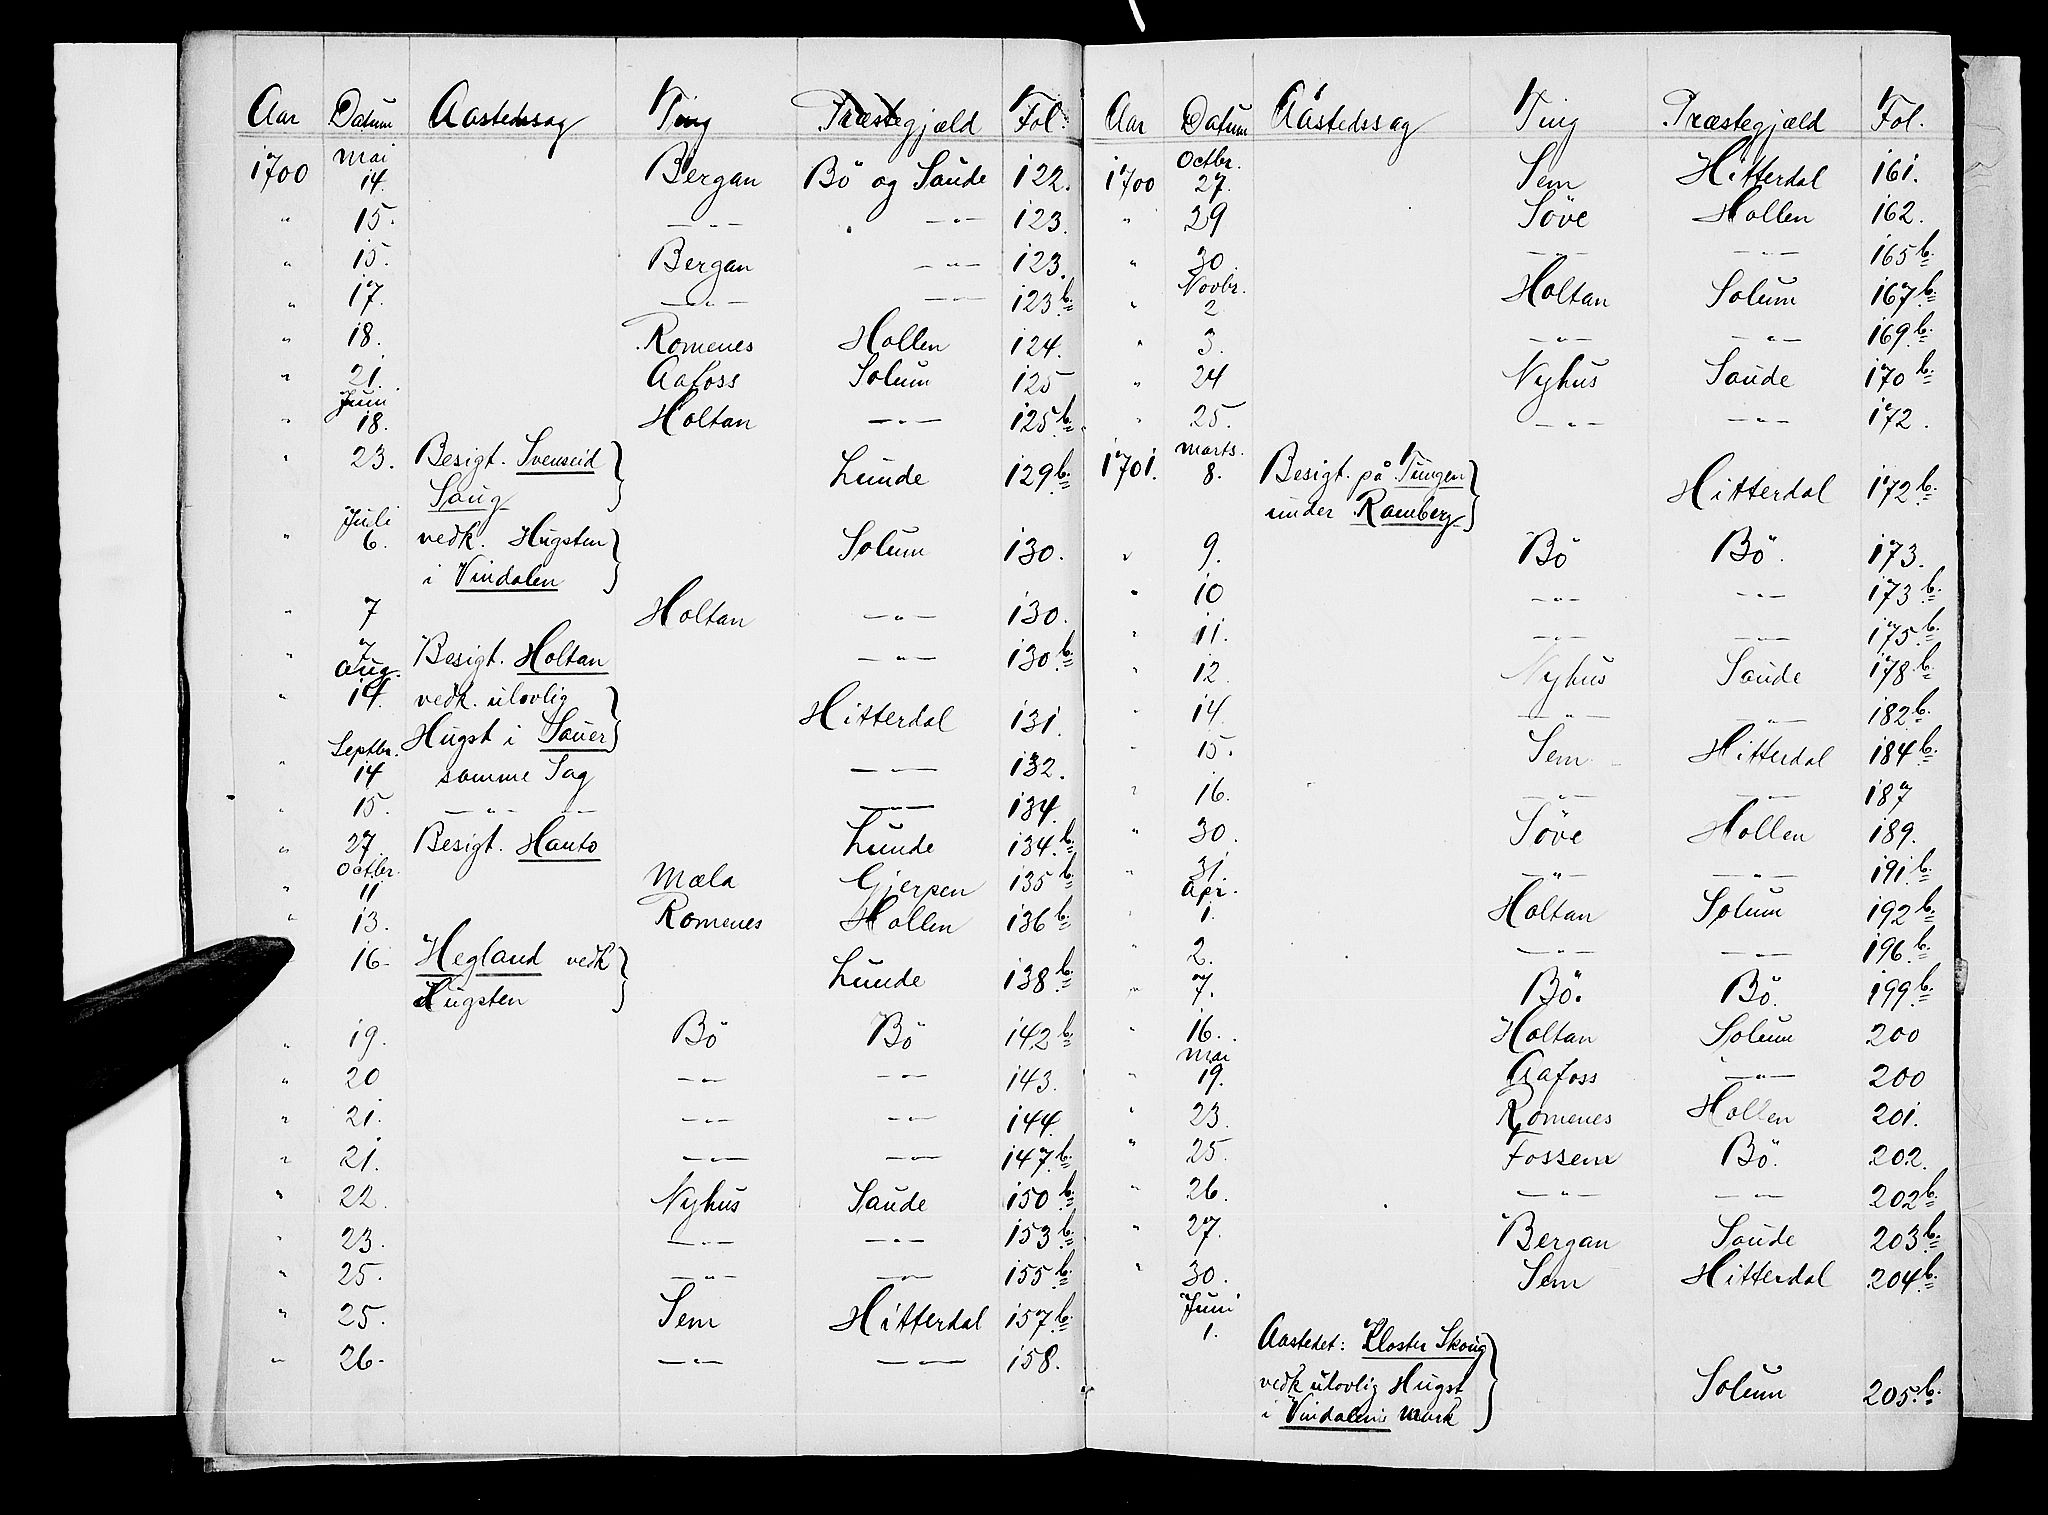 Aar Datum Aastedssag Ting Præstegjæld Fol.
1700 Mai 14. Bergan Bö og Saude 122.
" 15. —"— —"— 123.
" 15. Bergan —"— 123.
" 17. —"— —"— 123b.
" 18. Romenes Hollen 124.
" 21. Aafoss Solum 125
" Juni 18. Holtan —"— 125b.
" 23. Besigt. Svenseid Lunde 129b.
Saug
" Juli 6. vedk. Hugsten Solum 130.
i Vindalen
" 7 Holtan —"— 130.
" 7. Besigt. Holtan —"— 130b.
" Aug. 14. vedk. ulovlig
Hugst i Sauer Hitterdal 131.
" Septbr. 14 samme Sag —"— 132.
" 15. —"— —"— 134.
" 27. Besigt. Hauto Lunde 134b.
" Octbr. 11 Mæla Gjerpen 135b.
" 13. Romenes Hollen 136b.
" 16. Hegland vedk Lunde 138b.
Hugsten
" 19. Bö Bö 142b.
" 20 —"— —"— 143.
" 21. —"— —"— 144.
" 21. —"— —"— 147b.
" 22. Nyhus Saude 150b.
" 23. —"— —"— 153b.
" 25. —"— —"— 155b.
" 25. Sem Hitterdal 157b.
" 26. —"— —"— 158.
Aar Datum Aastedssag Ting Præstegjæld Fol.
1700 Octbr. 27. Sem Hitterdal 161.
" 29 Söve Hollen 162.
" 30. —"— —"— 165b.
" Novbr. 2. Holtan Solum 167b.
" 3. —"— —"— 169b.
" 24 Nyhus Saude 170b.
" 25. —"— —"— 172.
1701. Marts. 8. Besigt. på Tungen Hitterdal 172b.
under Ramberg
" 9. Bö Bö. 173.
" 10 —"— —"— 173b.
" 11. —"— —"— 175b.
" 12. Nyhus Saude 178b.
" 14. —"— —"— 182b.
" 15. Sem Hitterdal 184b.
" 16. —"— —"— 187
" 30. Söve Hollen 189.
" 31. —"— —"— 191b.
" Apr. 1. Holtan Solum 192b.
" 2. —"— —"— 196b.
" 7. Bö. Bö. 199b.
" 16. Holtan Solum 200
" Mai 19. Aafoss —"— 200
" 23. Romenes Hollen 201.
" 25. Fossem Bö. 202.
" 26. —"— —"— 202b.
" 27. Bergan Saude 203b.
" 30. Sem Hitterdal 204b.
Juni 1. Aastedet: Kloster Skoug
vedk ulovlig Hugst Solum 205b.
i Vindalens Mark